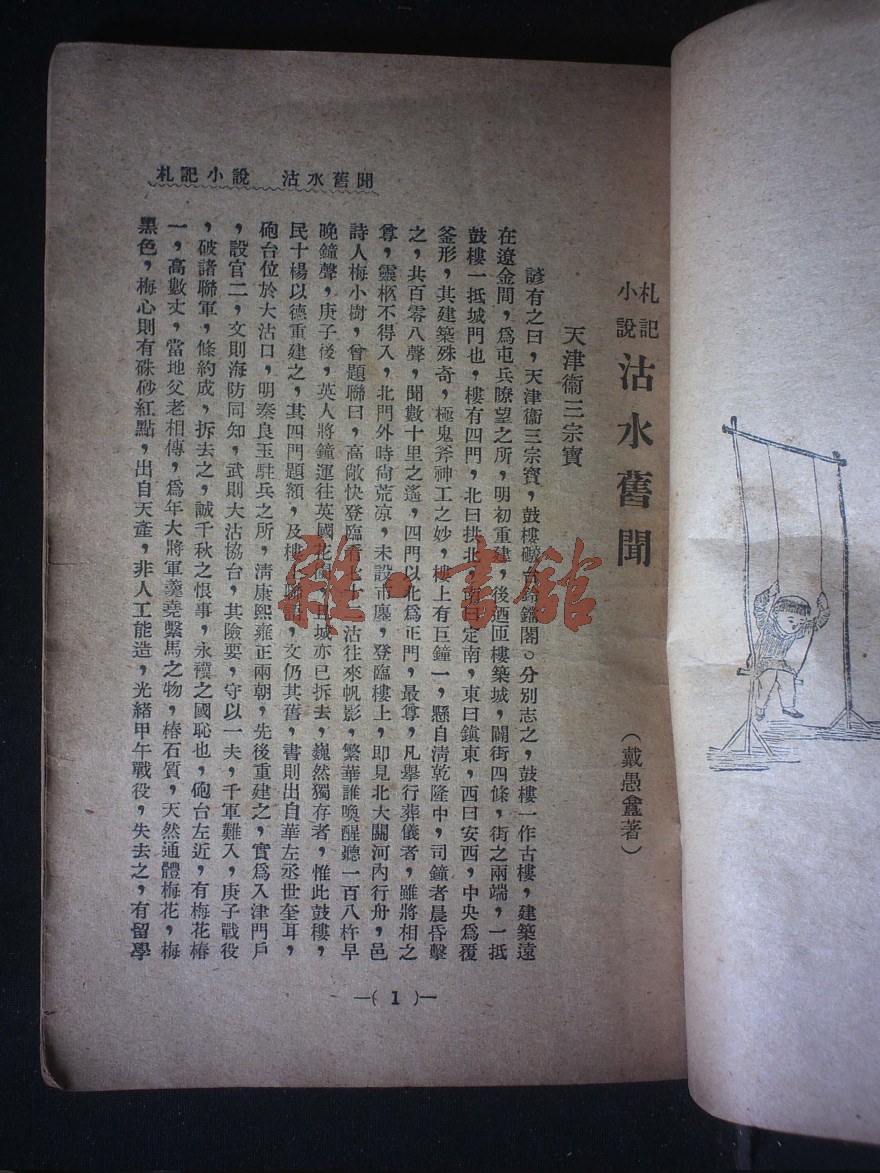 札記小說　沽水舊聞
札記
小說
沽水舊聞
（戴愚盦著）
天津衞三宗寶
諺有之曰，天津衞三宗寶，鼓樓礮台鈴鐺閣。分别志之，鼓樓一作古樓，建築遠
在遼金間，爲屯兵瞭望之所，明初重建，後迺匝樓築城，闢街四條，街之兩端，一抵
鼓樓一抵城門也，樓有四門，北曰拱北，南曰定南，東曰鎮東，西曰安西，中央爲覆
釜形，其建築殊奇，極鬼斧神工之妙，樓上有巨鐘一，懸自淸乾隆中，司鐘者晨昏擊
之，共百零八聲，聞數十里之遙，四門以北爲正門，最尊，凡舉行葬儀者，雖將相之
尊，靈柩不得入，北門外時尙荒凉，未設市廛，登臨樓上，即見北大關河內行舟，邑
詩人梅小樹，曾題聯曰，高敞快登臨看七十二沽往來帆影，繁華誰喚醒聽一百八杵早
晚鐘聲，庚子後，英人將鐘運往英國花園，城亦已拆去，巍然獨存者，惟此鼓樓，
民十楊以德重建之，其四門題額，及樓上聯語，文仍其舊，書則出自華左丞世奎耳，
砲台位於大沽口，明秦良玉駐兵之所，淸康熙雍正兩朝，先後重建之，實爲入津門戶
，設官二，文則海防同知，武則大沽協台，其險要，守以一夫，千軍難入，庚子戰役
，破諸聯軍，條約成，拆去之，誠千秋之恨事，永禩之國恥也，砲台左近，有梅花樁
一，高數丈，當地父老相傳，爲年大將軍羹堯繫馬之物，樁石質，天然通體梅花，梅
黑色，梅心則有硃砂紅點，出自天產，非人工能造，光緒甲午戰役，失去之，有留學
—( 1 )—
雜·書館